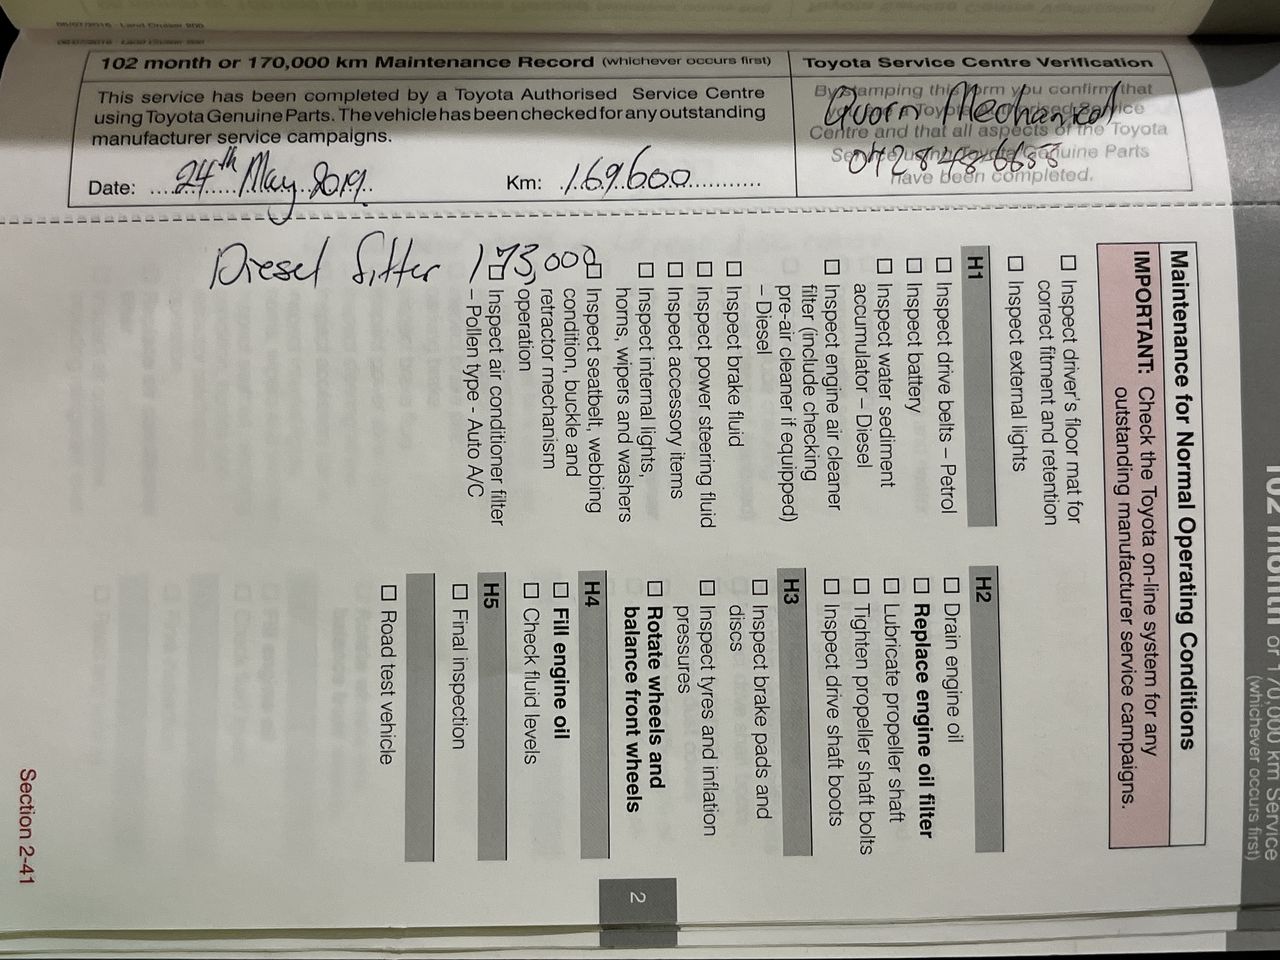 06/07/2016 - Land Cruiser 200
102 month or 170,000 km Maintenance Record (whichever occurs first)
This service has been completed by a Toyota Authorised Service Centre
using Toyota Genuine Parts. The vehicle has been checked for any outstanding
manufacturer service campaigns.
Date: 24th May 2019
Km: 169600
Toyota Service Centre Verification
By stamping this form you confirm that
Toyota Authorised Service
Centre and that all aspects of the Toyota
Genuine Parts
have been completed.
Quorn Mechanical
Diesel filter 173,000
102 month or 170,000 km Service
(whichever occurs first)
Maintenance for Normal Operating Conditions
IMPORTANT: Check the Toyota on-line system for any
outstanding manufacturer service campaigns.
☐ Inspect driver's floor mat for
correct fitment and retention
☐ Inspect external lights
H1
☐ Inspect drive belts – Petrol
☐ Inspect battery
☐ Inspect water sediment
accumulator – Diesel
☐ Inspect engine air cleaner
filter (include checking
pre-air cleaner if equipped)
– Diesel
☐ Inspect brake fluid
☐ Inspect power steering fluid
☐ Inspect accessory items
☐ Inspect internal lights,
horns, wipers and washers
☐ Inspect seatbelt, webbing
condition, buckle and
retractor mechanism
operation
☐ Inspect air conditioner filter
– Pollen type - Auto A/C
H2
☐ Drain engine oil
☐ Replace engine oil filter
☐ Lubricate propeller shaft
☐ Tighten propeller shaft bolts
☐ Inspect drive shaft boots
H3
☐ Inspect brake pads and
discs
☐ Inspect tyres and inflation
pressures
☐ Rotate wheels and
balance front wheels
H4
☐ Fill engine oil
☐ Check fluid levels
H5
☐ Final inspection
☐ Road test vehicle
2
Section 2-41